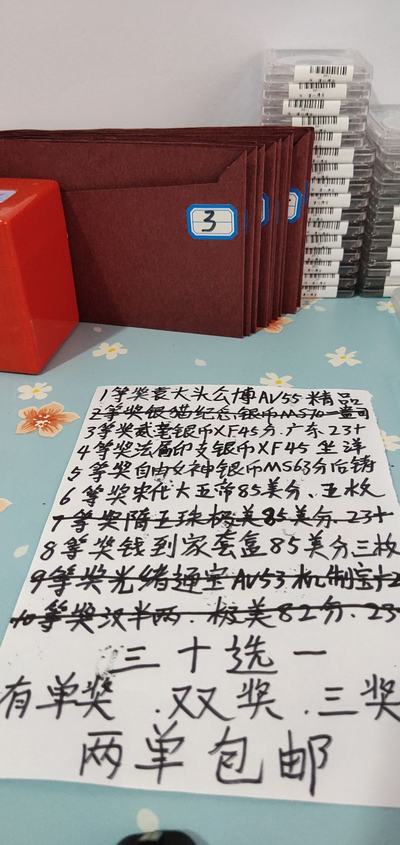 3
1等奖袁大头公博AV55精品
2等奖银猫纪念银币MS70一盎司
3等奖贰毫银币XF45分.广东23+
4等奖法属印支银币XF45坐洋
5等奖自由女神银币MS63分后铸
6等奖宋代大五帝85美分.五枚
7等奖隋五珠极美85美分.23+
8等奖钱到家套盒85美分三枚
9等奖光绪通宝AV53机制宝+2
10等奖汉半两.极美82分.23
三十选一
有单奖.双奖.三奖
两单包邮